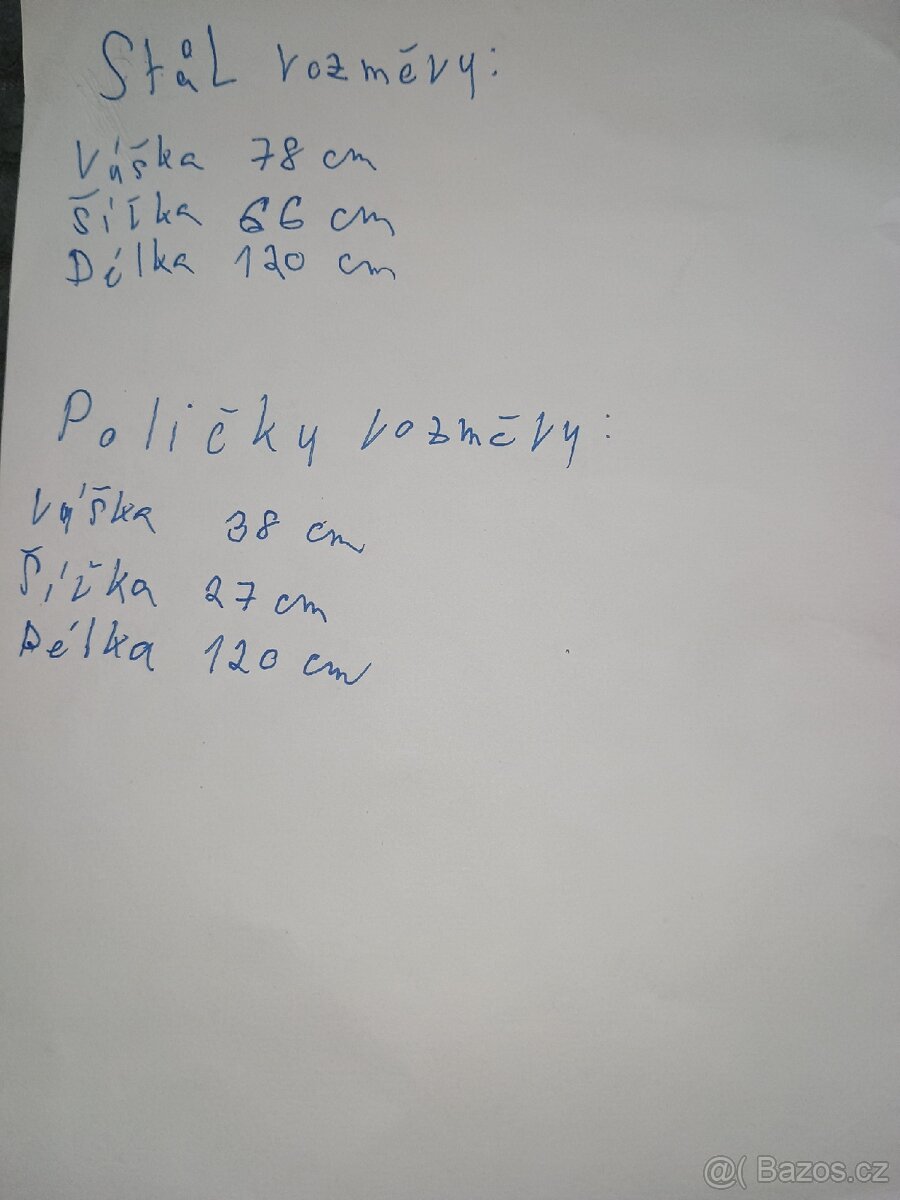 Stůl rozměry:
Výška 78 cm
Šířka 66 cm
Délka 120 cm
Poličky rozměry:
Výška 38 cm
Šířka 27 cm
Délka 120 cm
@( Bazos.cz